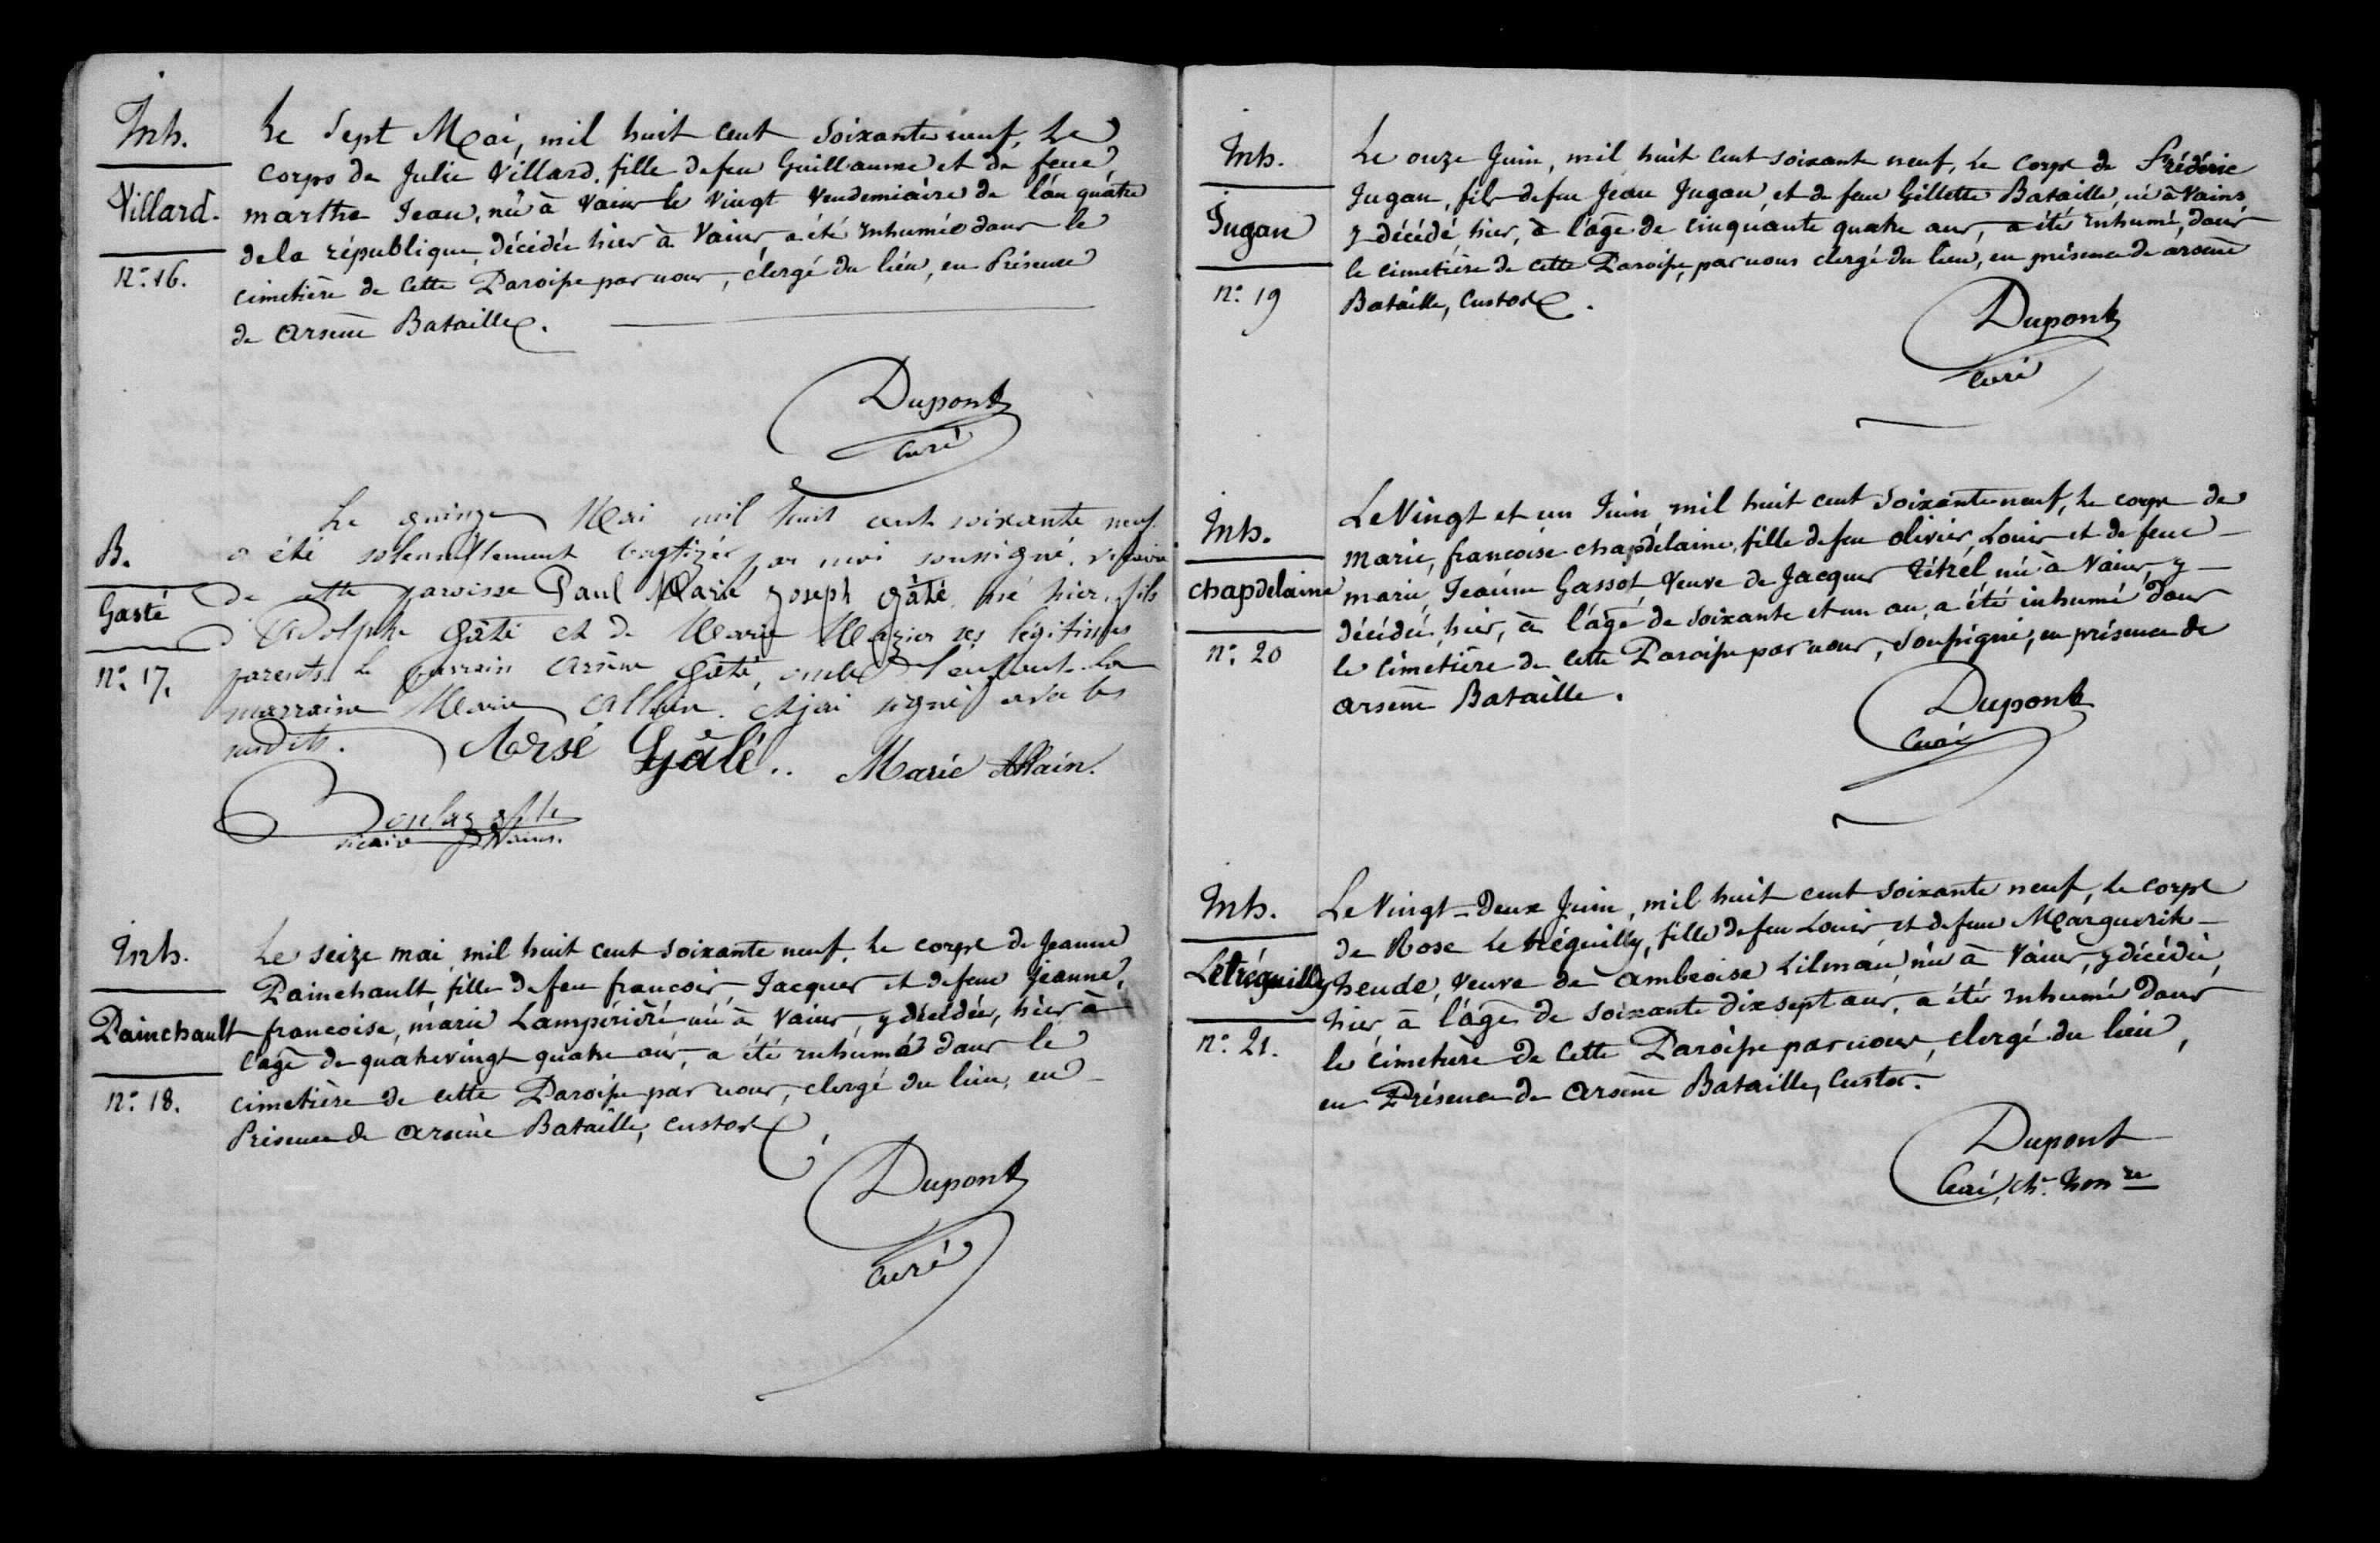 Inh.
Villard.
n.° 16.
Le Sept Mai, mil huit cent soixante neuf, Le
corps de Julie Villard, fille de feu Guillaume et de feue
marthe Jean, née à Vains le vingt Vendemiaire de l'an quatre
de la république, décédée hier à Vains, a été inhumée dans le
cimetière de cette Paroisse par nous, clergé du lieu, en Présence
de arsène Bataille.
Dupont
curé
B.
Gasté
n.° 17.
Le quinze Mai mil huit cent soixante neuf
a été solennellement baptizé par moi soussigné, vicaire
de cette paroisse Paul Marie Joseph Gâté, né hier, fils
d'Adolphe Gâté et de Marie Mazier ses légitimes
parents. Le parrain Arsène Gâté, oncle de l'enfant. La
marraine Marie Allain. Et j'ai signé avec les
susdits.
Arsé Gâté.. Marie Allain.
vicaire de Vains.
Inh.
Painchault
n.° 18.
Le seize mai, mil huit cent soixante neuf, le corps de Jeanne
Painchault, fille de feu francois, Jacques et de feue Jeanne,
francoise, marie Lampérière, née à Vains, y décédée, hier à
l'âge de quatrevingt quatre ans, a été inhumé dans le
cimetière de cette Paroisse par nous, clergé du lieu, en
Présence de arsène Bataille, custos.
Dupont
curé
Inh.
Jugan
n.° 19
Le onze Juin, mil huit cent soixante neuf, le corps de Fréderic
Jugan, fils de feu Jean Jugan, et de feue Gillette Bataille, né à Vains,
y décédé, hier, à l'âge de cinquante quatre ans, a été inhumé, dans
le cimetière de cette Paroisse, par nous clergé du lieu, en présence de arsène
Bataille, Custos.
Dupont
curé
Inh.
chapdelaine
n.° 20
Le Vingt et un Juin, mil huit cent soixante neuf, le corps de
marie, francoise chapdelaine, fille de feu olivier, Louis et de feue
marie, Jeanne Gassot, Veuve de Jacques Tétrel née à Vains, y
décédée, hier, à l'âge de soixante et un an, a été inhumé dans
le cimetière de cette Paroisse par nous, soussigné, en présence de
arsène Bataille.
Dupont
Curé
Inh.
Letréguilly
n.° 21.
Le Vingt-Deux Juin, mil huit cent soixante neuf, le corps
de Rose Le tréguilly, fille de feu Louis et de feue Marguerite
heude, Veuve de ambroise Lilman, née à Vains, y décédée,
hier, à l'âge de soixante dix sept ans, a été inhumé dans
le cimetière de cette Paroisse par nous, clergé du lieu,
en Présence de arsène Bataille, Custos.
Dupont
Curé, ch. hon re